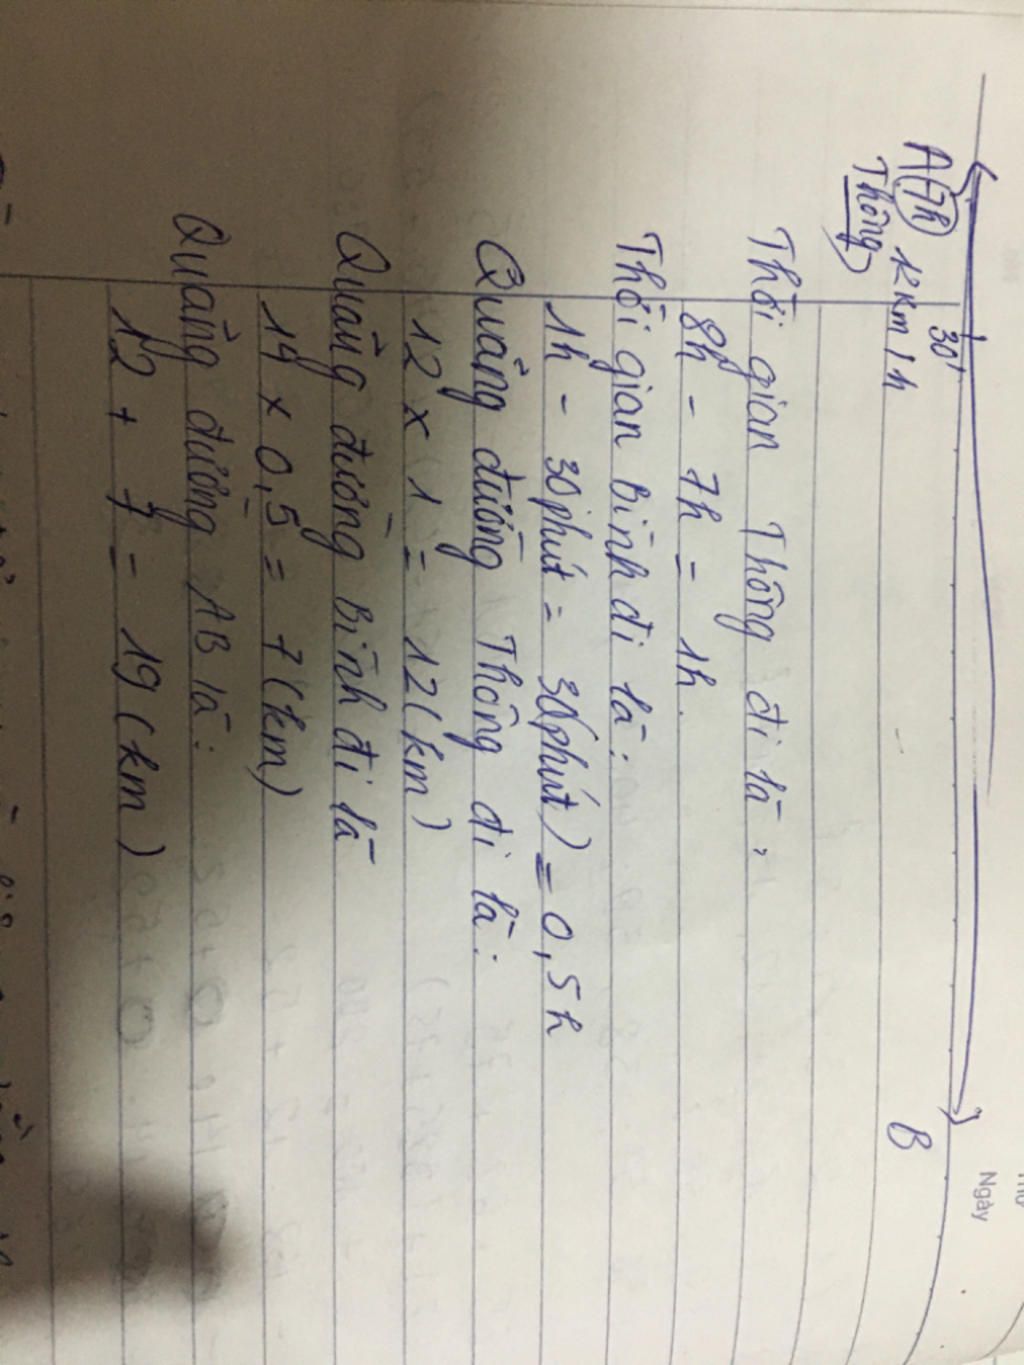 Thứ
Ngày
30'
A (7h) 12 km / h B
Thông
Thời gian Thông đi là:
8h - 7h = 1h.
Thời gian Bình đi là:
1h - 30 phút = 30(phút) = 0,5h
Quảng đường Thông đi là:
12 x 1 = 12 (km)
Quảng đường Bình đi là
14 x 0,5 = 7 (km)
Quảng đường AB là:
12 + 7 = 19 (km)